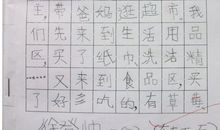 车,带爸妈逛超市。我
们先来到生活用品
区,买了纸巾、洗洁精
……又来到食品区,买
了好多吃的,有草莓、